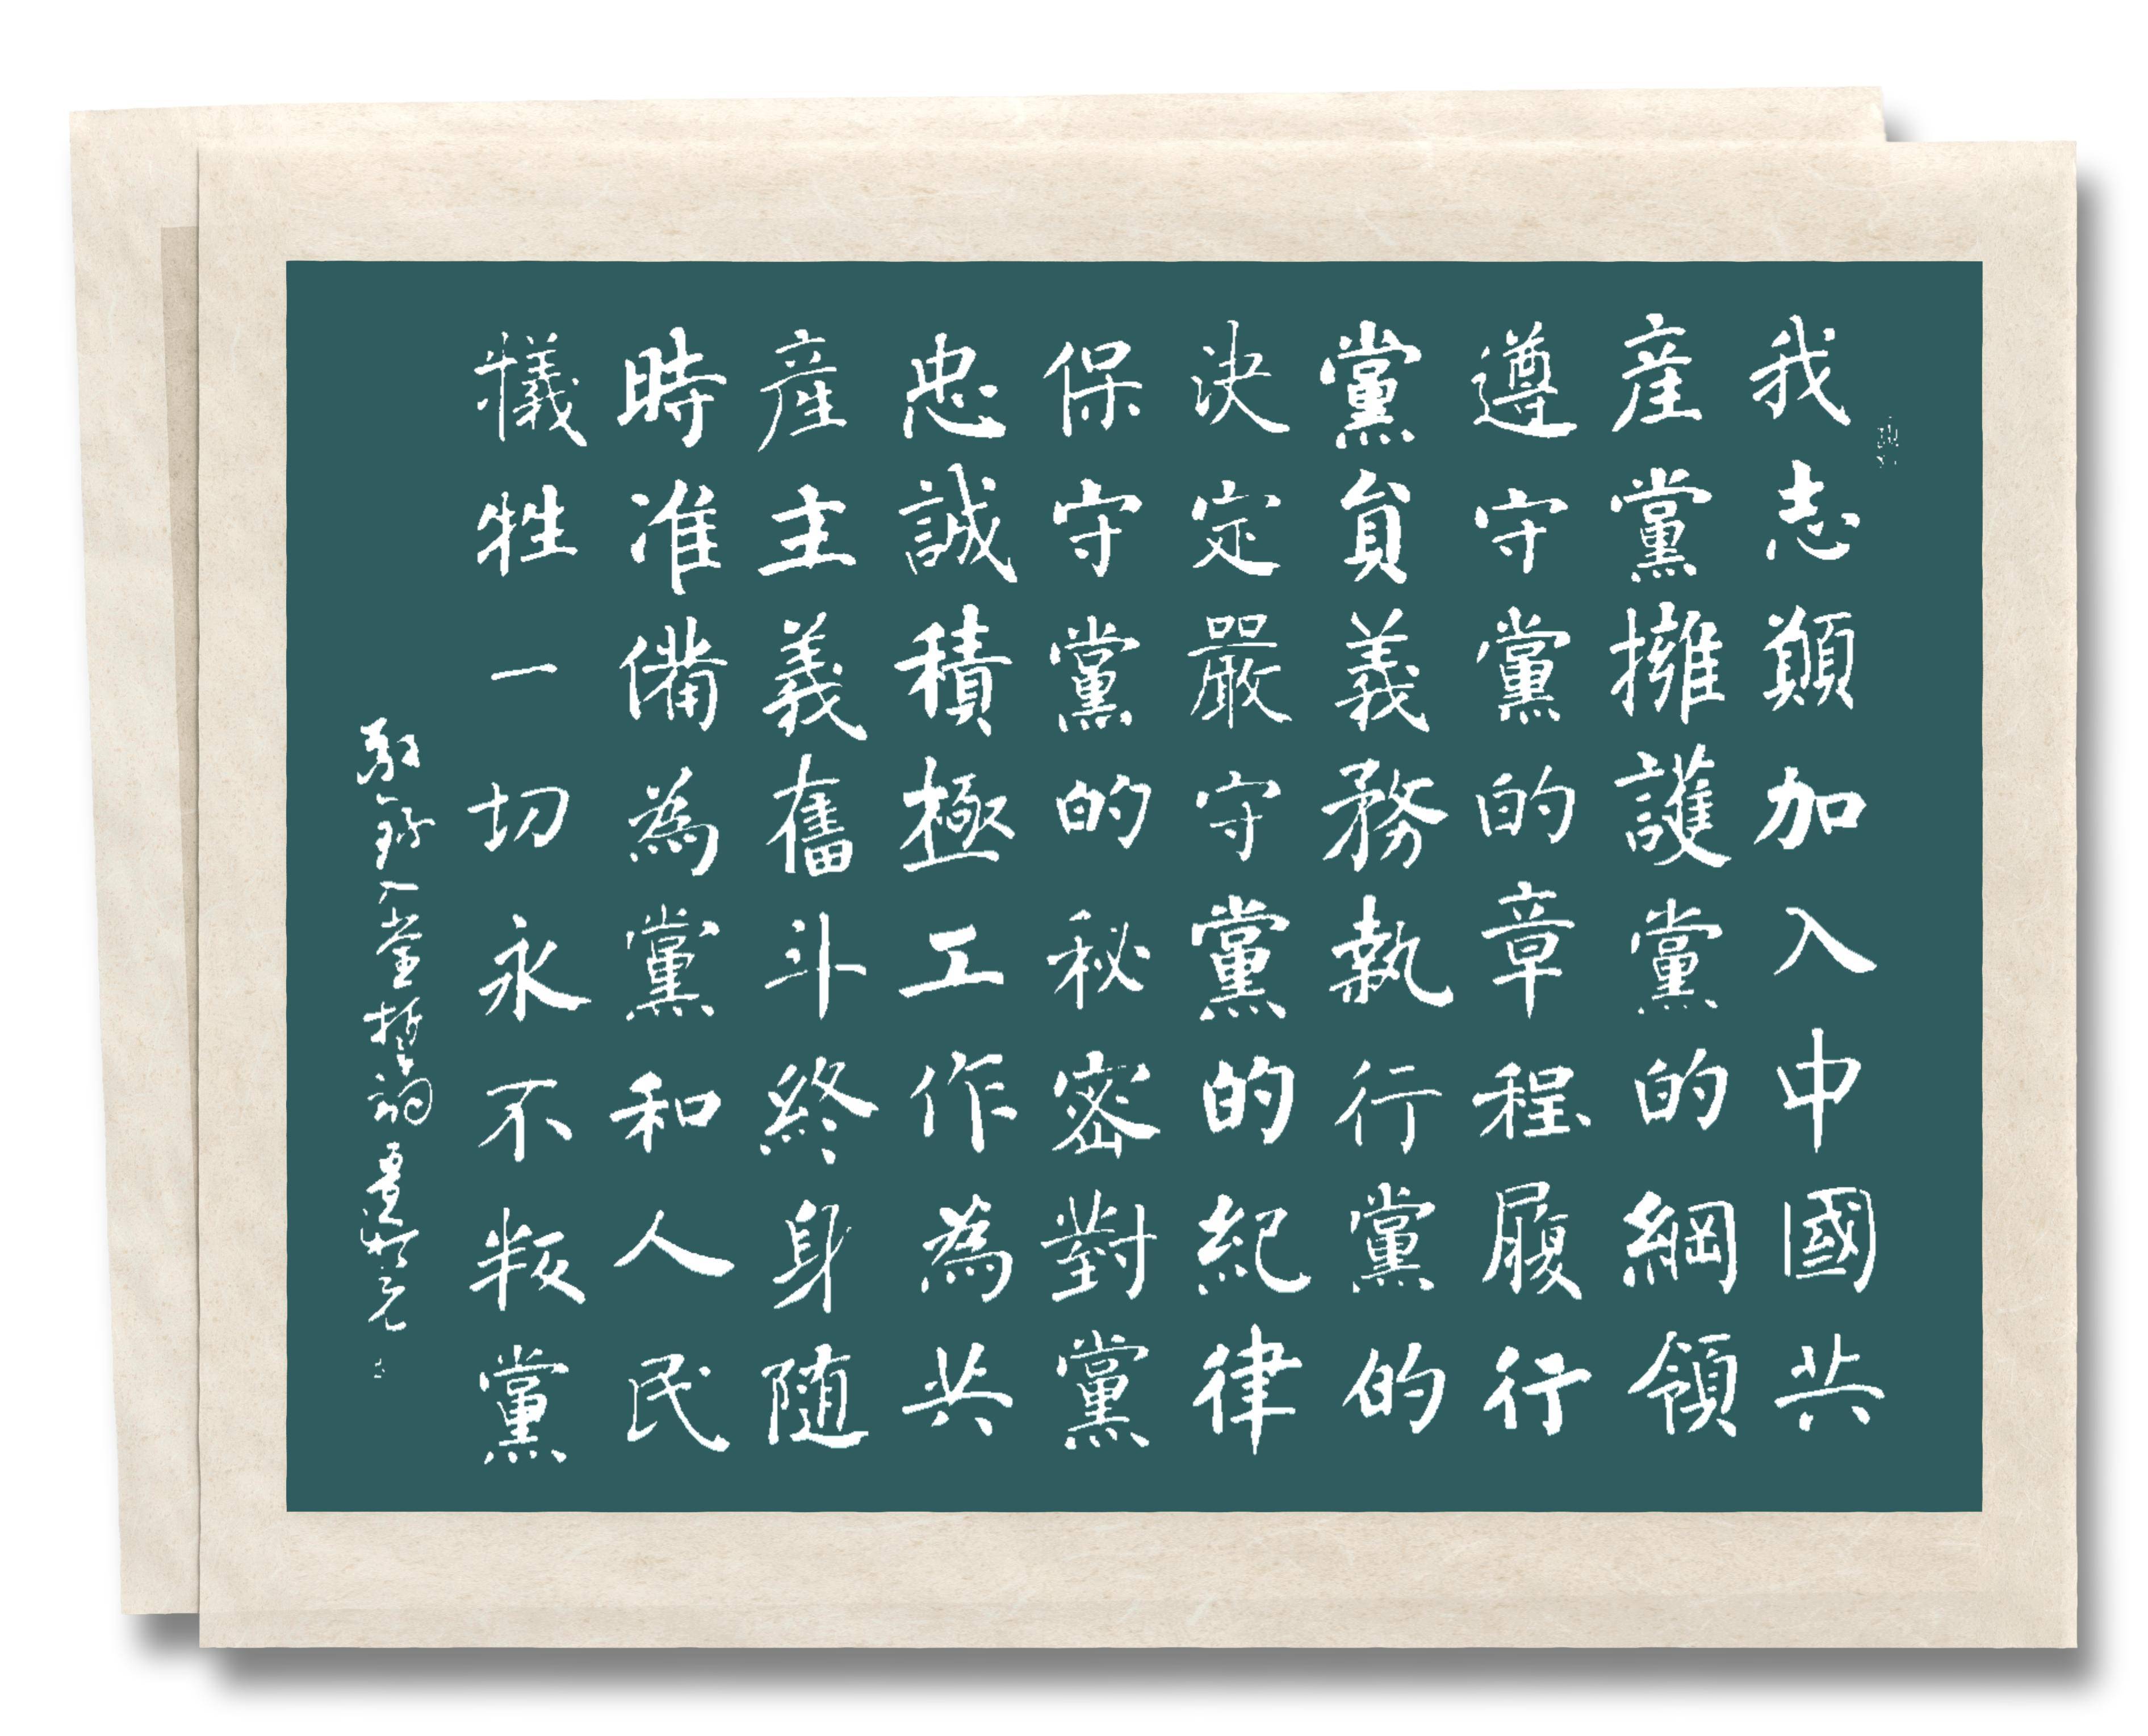 我志願加入中國共
産黨擁護黨的綱領
遵守黨的章程履行
黨員義務執行黨的
決定嚴守黨的紀律
保守黨的秘密對黨
忠誠積極工作為共
産主義奮斗終身随
時准備為黨和人民
犧牲一切永不叛黨
錄入黨誓詞